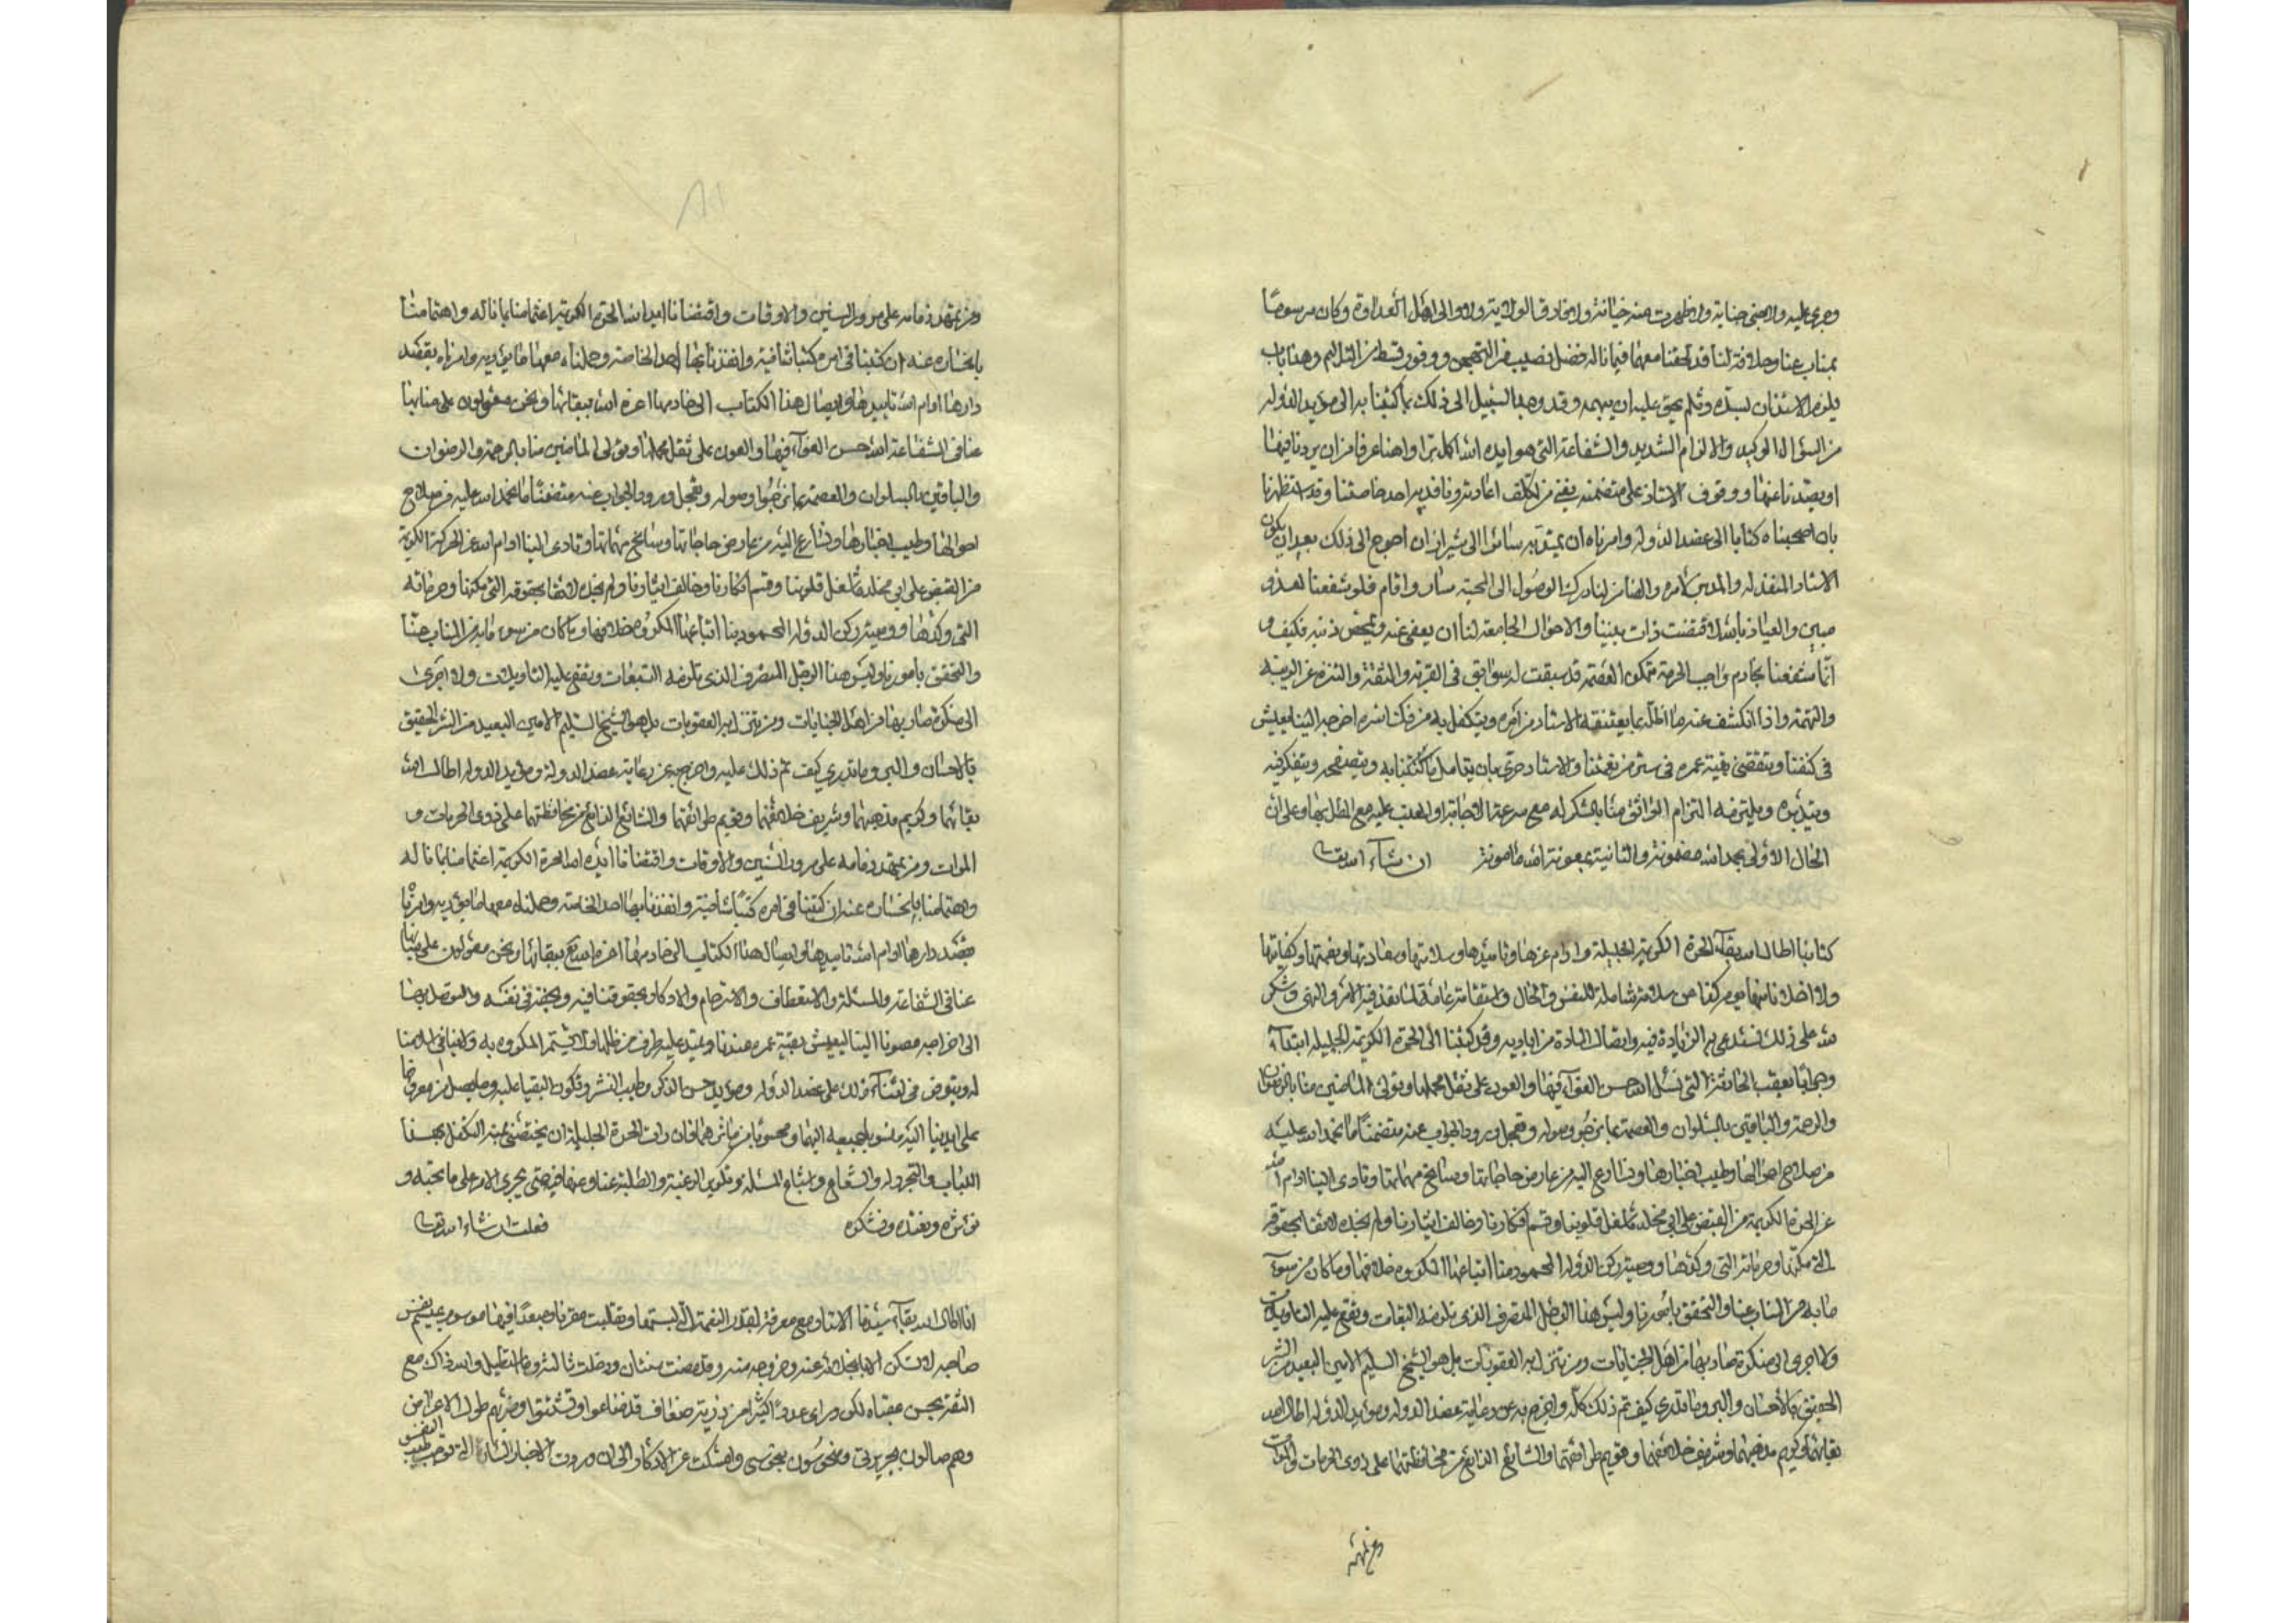 وجرى عليه ولا جنى جناية ولا ظهرت منه خيانة ولا فارق الولاية ولا والى اهل العداوة وكان مرسوما
بمناب عنا وخلافة لنا قد لحقنا معهما فيما ناله فضل نصيب من التهجين ووفور قسط من التثليم وهذا باب
يلزم الاستاذ لسده وثلم يحق عليه ان يهمه وقد وجد السبيل الى ذلك بما كتبنا به الى مؤيد الدولة
من السؤال الوكيد والالزام الشديد والشفاعة التي هو ايده الله اكمل برا واهنا عرفا من ان يردنا فيها
او يصدنا عنها ووقوف الاستاذ على متضمنه يغني من تكلف اعادته ونافذ به احد خاصتنا وقد استظهرنا
بان اصحبناه كتابا الى عضد الدولة وامرناه ان يتوجه سائرا الى شيراز ان احوج الى ذلك بعد ان يكون
الاستاذ المنفذ له والمدبر لامره والضامن لنا درك الوصول الى المحبة سار واقام فلو شفعنا لعدو
مبين والعياذ بالله لاقتضت ذات بيننا والاحوال الجامعة لنا ان يعفى عنه وتمحص ذنبه فكيف و
انما شفعنا بخادم واجب الحرمة متمكن العصمة قد سبقت له سوابق في القربة والثقة والتنزه عن الريبة
والتهمة واذا انكشف عنه ما اظله بما يعتنقه الاستاذ من امره ويتكفل به من فك اسره اخرجه الينا ليعيش
في كنفنا ويتقضى بقية عمره في ستر من نعمتنا والاستاذ حري بان يتامل ما كتبنا به ويتصفحه ويتفكر فيه
ويتدبره ويلتزمه التزام الواثق منا بالشكر له مع سرعة الاجابة او العتب عليه مع المطل بها وعلى ان
الحال الاولى بحمد الله مضمونة والثانية بمعونة الله مامونة ان شاء الله تعالى
كتابنا اطال الله بقاء الحرة الكريمة الجليلة وادام عزها وتاييدها وسلامتها وسعادتها ونعمتها وكفايتها
ولا اخلانا منها من مركزنا عن سلامة شاملة للنفس والحال واستقامة عامة لما ينفذ فيه الامر والنهي وشكر
لله على ذلك نستدعي به الزيادة فيه واتصال المادة من اياديه وقد كتبنا الى الحرة الكريمة الجليلة ابتداء
وجوابا بعقب الحادثة التي نسل الله حسن العزاء فيها والعون على ثقل محملها وتولى الماضين منا بالرضوان
والرحمة والباقين بالسلوان والعصمة بما نرجو وصوله وتعجل ورود الجواب عنه متضمنا ما نحمد الله عليه
من صلاح احوالها وطيب اخبارها ونسارع اليه من عارض حاجاتها وسانح مهماتها وتادى الينا ادام الله
عز الحرة الكريمة من القبض على ابي مخلد ما شغل قلوبنا وقسم افكارنا وخالف ايثارنا ولم نجده لائقا بحقوقه
التي مكنها وحرماته التي وكدها ووصية ركن الدولة المحمود منا اتباعها المكروه خلافها وما كان مرسوما
به من المناب عنا والتحقق بامورنا وليس هذا الرجل المتصرف الذي تلزمه التبعات وتقع عليه التاويلات
ولا اجرى الى منكرة صار بها من اهل الجنايات ومن تتنزل به العقوبات بل هو الشيخ السليم الامين البعيد من الشر
الحقيق بالاحسان والبر وما ندري كيف تم ذلك كله واخرج به عن رعاية عضد الدولة ومؤيد الدولة اطال الله
بقاءهما وكريم مذهبهما وشريف خلائقهما وقويم طرائقهما والشائع الذائع من محافظتهما على ذوي الحرمات والموات
ومن تمهد
ومن تمهد ذمامه على مرور السنين والاوقات واقتضانا ايد الله الحرة الكريمة اغتمامنا بما ناله واهتمامنا
بانحساره عنه ان كتبنا في امره كتبا شافية وانفذنا بها احد الخاصة وحملناه معها ما يؤديه وامرناه بقصد
دارها ادام الله تاييدها وايصال هذا الكتاب الى خادمها اعزه الله ببقائها ونحن معولون على منابها
عنا في الشفاعة الله حسن العزاء فيها والعون على ثقل محملها وتولى الماضين منا بالرحمة والرضوان
والباقين بالسلوان والعصمة بما نرجو وصوله وتعجل ورود الجواب عنه متضمنا ما نحمد الله عليه من صلاح
احوالها وطيب اخبارها ونسارع اليه من عارض حاجاتها وسانح مهماتها وتادى الينا ادام الله عز الحرة الكريمة
من القبض على ابي مخلد ما شغل قلوبنا وقسم افكارنا وخالف ايثارنا ولم نجده لائقا بحقوقه التي مكنها وحرماته
التي وكدها ووصية ركن الدولة المحمود منا اتباعها المكروه خلافها وما كان مرسوما به من المناب عنا
والتحقق بامورنا وليس هذا الرجل المتصرف الذي تلزمه التبعات وتقع عليه التاويلات ولا اجرى
الى منكرة صار بها من اهل الجنايات ومن تتنزل به العقوبات بل هو الشيخ السليم الامين البعيد من الشر الحقيق
بالاحسان والبر وما ندري كيف تم ذلك عليه واخرج به عن رعاية عضد الدولة ومؤيد الدولة اطال الله
بقائهما وكريم مذهبهما وشريف خلائقهما وقويم طرائقهما والشائع الذائع من محافظتهما على ذوي الحرمات و
الموات ومن تمهد ذمامه على مرور السنين والاوقات واقتضانا ايد الله الحرة الكريمة اغتمامنا بما ناله
واهتمامنا بانحساره عنه ان كتبنا في امره كتبا شافية وانفذنا بها احد الخاصة وحملناه معها ما يؤديه وامرناه
بقصد دارها ادام الله تاييدها وايصال هذا الكتاب الى خادمها اعزه الله تع ببقائها ونحن معولون على منابها
عنا في الشفاعة والمسئلة والاستعطاف والاسترحام والاذكار بحقوقنا فيه وبحقه في نفسه والتوصل بهما
الى اخراجه مصونا الينا ليعيش بقية عمره عندنا
له ويتعوض من لقائه ذلك على عضد الدولة ومؤيد حسن الذكر وطيب النشر وتكون البقيا عليه وما يصل من معروفها
على ايدينا اليه منسوبا جميعه اليهما ومحسوبا من ماثرهما فان رات الحرة الجليلة ان يختصني بمنة التكفل بهذا
الباب والتجرد له والشفاعة واشباع المسئلة وتكرير الرغبة والطلبة عنا وعنها فيه حتى يجري الامر على ما نحبه و
نؤثره ونعتده ونشكره فعلت ان شاء الله تعالى
انا اطال الله بقاء سيدنا الاستاذ مع معرفة بقدر النعمة التي لبستها وتقلبت مقربا ومبعدا فيها موسوم بعبد نفس
صاحبه لا تسكن الا بانجلائه عنه وخروجه منه وقد مضت سنتان ودخلت ثالثة وما استقليل والله ذاك مع
الثقة بحسن عقباه لكن وراي عددا كثيرا من ذرية ضعاف قد ضاعوا وتشتتوا وضرهم طول الاعراض
وهم صالون بجريرتي ومنحوسون بنحوسي وامسكت عن الاذكار الى ان وردت الاخبار السارة التي توجب طيب النفس